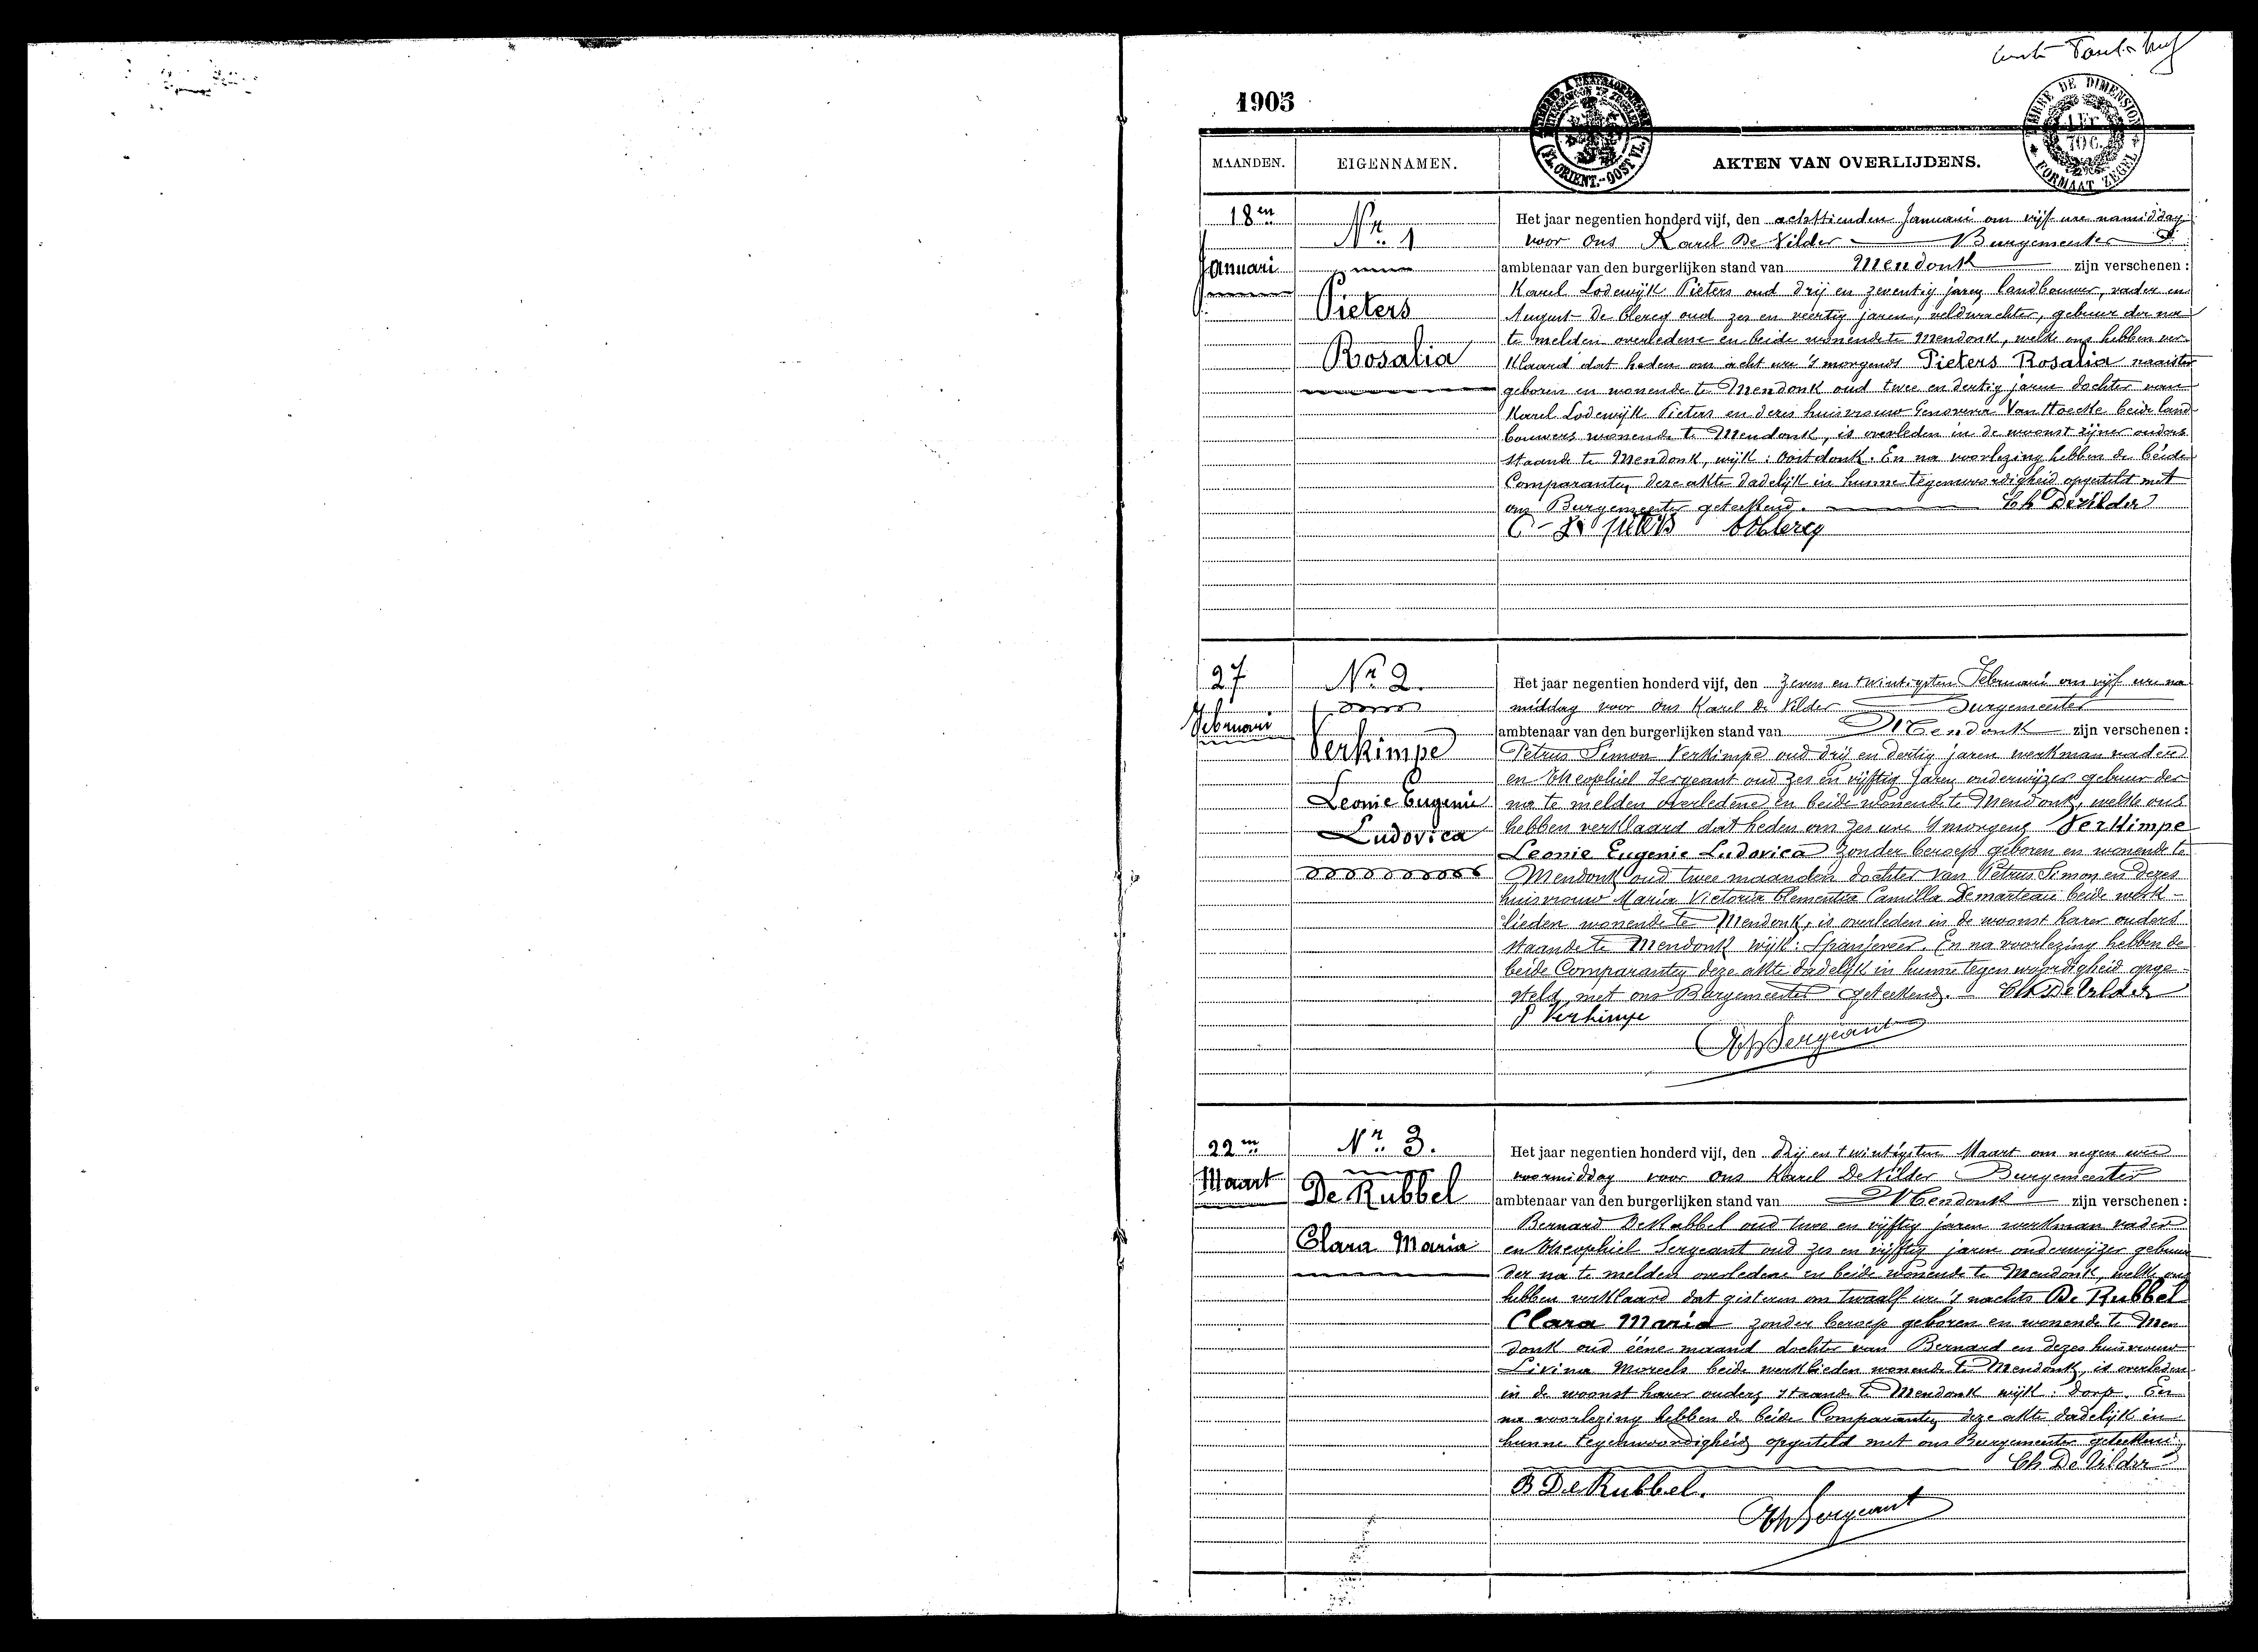 1905
TIMBRE DE DIMENSION
1 Fr
70 C.
FORMAAT ZEGEL
(FL. ORIENT.-OOST VL.)
MAANDEN. EIGENNAMEN. AKTEN VAN OVERLIJDENS.
18en
Januari
Nr. 1
Pieters
Rosalia
Het jaar negentien honderd vijf, den achttienden Januari om vijf ure namiddag
voor ons Karel De Vilder Burgemeester
ambtenaar van den burgerlijken stand van Mendonk zijn verschenen :
Karel Lodewijk Pieters oud drij en zeventig jaren landbouwer, vader en
August De Clercq oud zes en veertig jaren, veldwachter, gebuur der na
te melden overledene en beide wonende te Mendonk, welke ons hebben ver-
klaard dat heden om acht ure 's morgends Pieters Rosalia naaister
geboren en wonende te Mendonk oud twee en dertig jaren dochter van
Karel Lodewijk Pieters en dezes huisvrouw Genoveva Van Hoecke beide land-
bouwers wonende te Mendonk, is overleden in de woonst zijner ouders
staande te Mendonk, wijk : Oostdonk. En na voorlezing hebben de beide
Comparanten deze akte dadelijk in hunne tegenwoordigheid opgesteld met
ons Burgemeester geteekend. Ch De Vilder
C L Pieters A Declercq
27
Februari
Nr. 2.
Verkimpe
Leonie Eugenie
Ludovica
Het jaar negentien honderd vijf, den zeven en twintigsten Februari om vijf ure na
middag voor ons Karel De Vilder Burgemeester
ambtenaar van den burgerlijken stand van Mendonk zijn verschenen :
Petrus Simon Verkimpe oud drij en dertig jaren werkman vader
en Theophiel Sergeant oud zes en vijftig jaren onderwijzer gebuur der
na te melden overledene en beide wonende te Mendonk, welke ons
hebben verklaard dat heden om zes ure 's morgens Verkimpe
Leonie Eugenie Ludovica zonder beroep geboren en wonende te
Mendonk oud twee maanden dochter van Petrus Simon en dezes
huisvrouw Maria Victoria Clementia Camilla Demarteau beide werk-
lieden wonende te Mendonk, is overleden in de woonst harer ouders
staande te Mendonk wijk : Spanjeveer. En na voorlezing hebben de
beide Comparanten deze akte dadelijk in hunne tegenwoordigheid opge-
steld met ons Burgemeester geteekend. Ch De Vilder
P Verkimpe
Th Sergeant
22en
Maart
Nr. 3.
De Rubbel
Clara Maria
Het jaar negentien honderd vijf, den drij en twintigsten Maart om negen ure
voormiddag voor ons Karel De Vilder Burgemeester
ambtenaar van den burgerlijken stand van Mendonk zijn verschenen :
Bernard De Rubbel oud twee en vijftig jaren werkman vader
en Theophiel Sergeant oud zes en vijftig jaren onderwijzer gebuur
der na te melden overledene en beide wonende te Mendonk, welke ons
hebben verklaard dat gisteren om twaalf ure 's nachts De Rubbel
Clara Maria zonder beroep geboren en wonende te Men
donk oud ééne maand dochter van Bernard en dezes huisvrouw
Livina Moreels beide werklieden wonende te Mendonk, is overleden
in de woonst harer ouders staande te Mendonk wijk : Dorp. En
na voorlezing hebben de beide Comparanten deze akte dadelijk in
hunne tegenwoordigheid opgesteld met ons Burgemeester geteekend
Ch De Vilder
B De Rubbel.
Th Sergeant